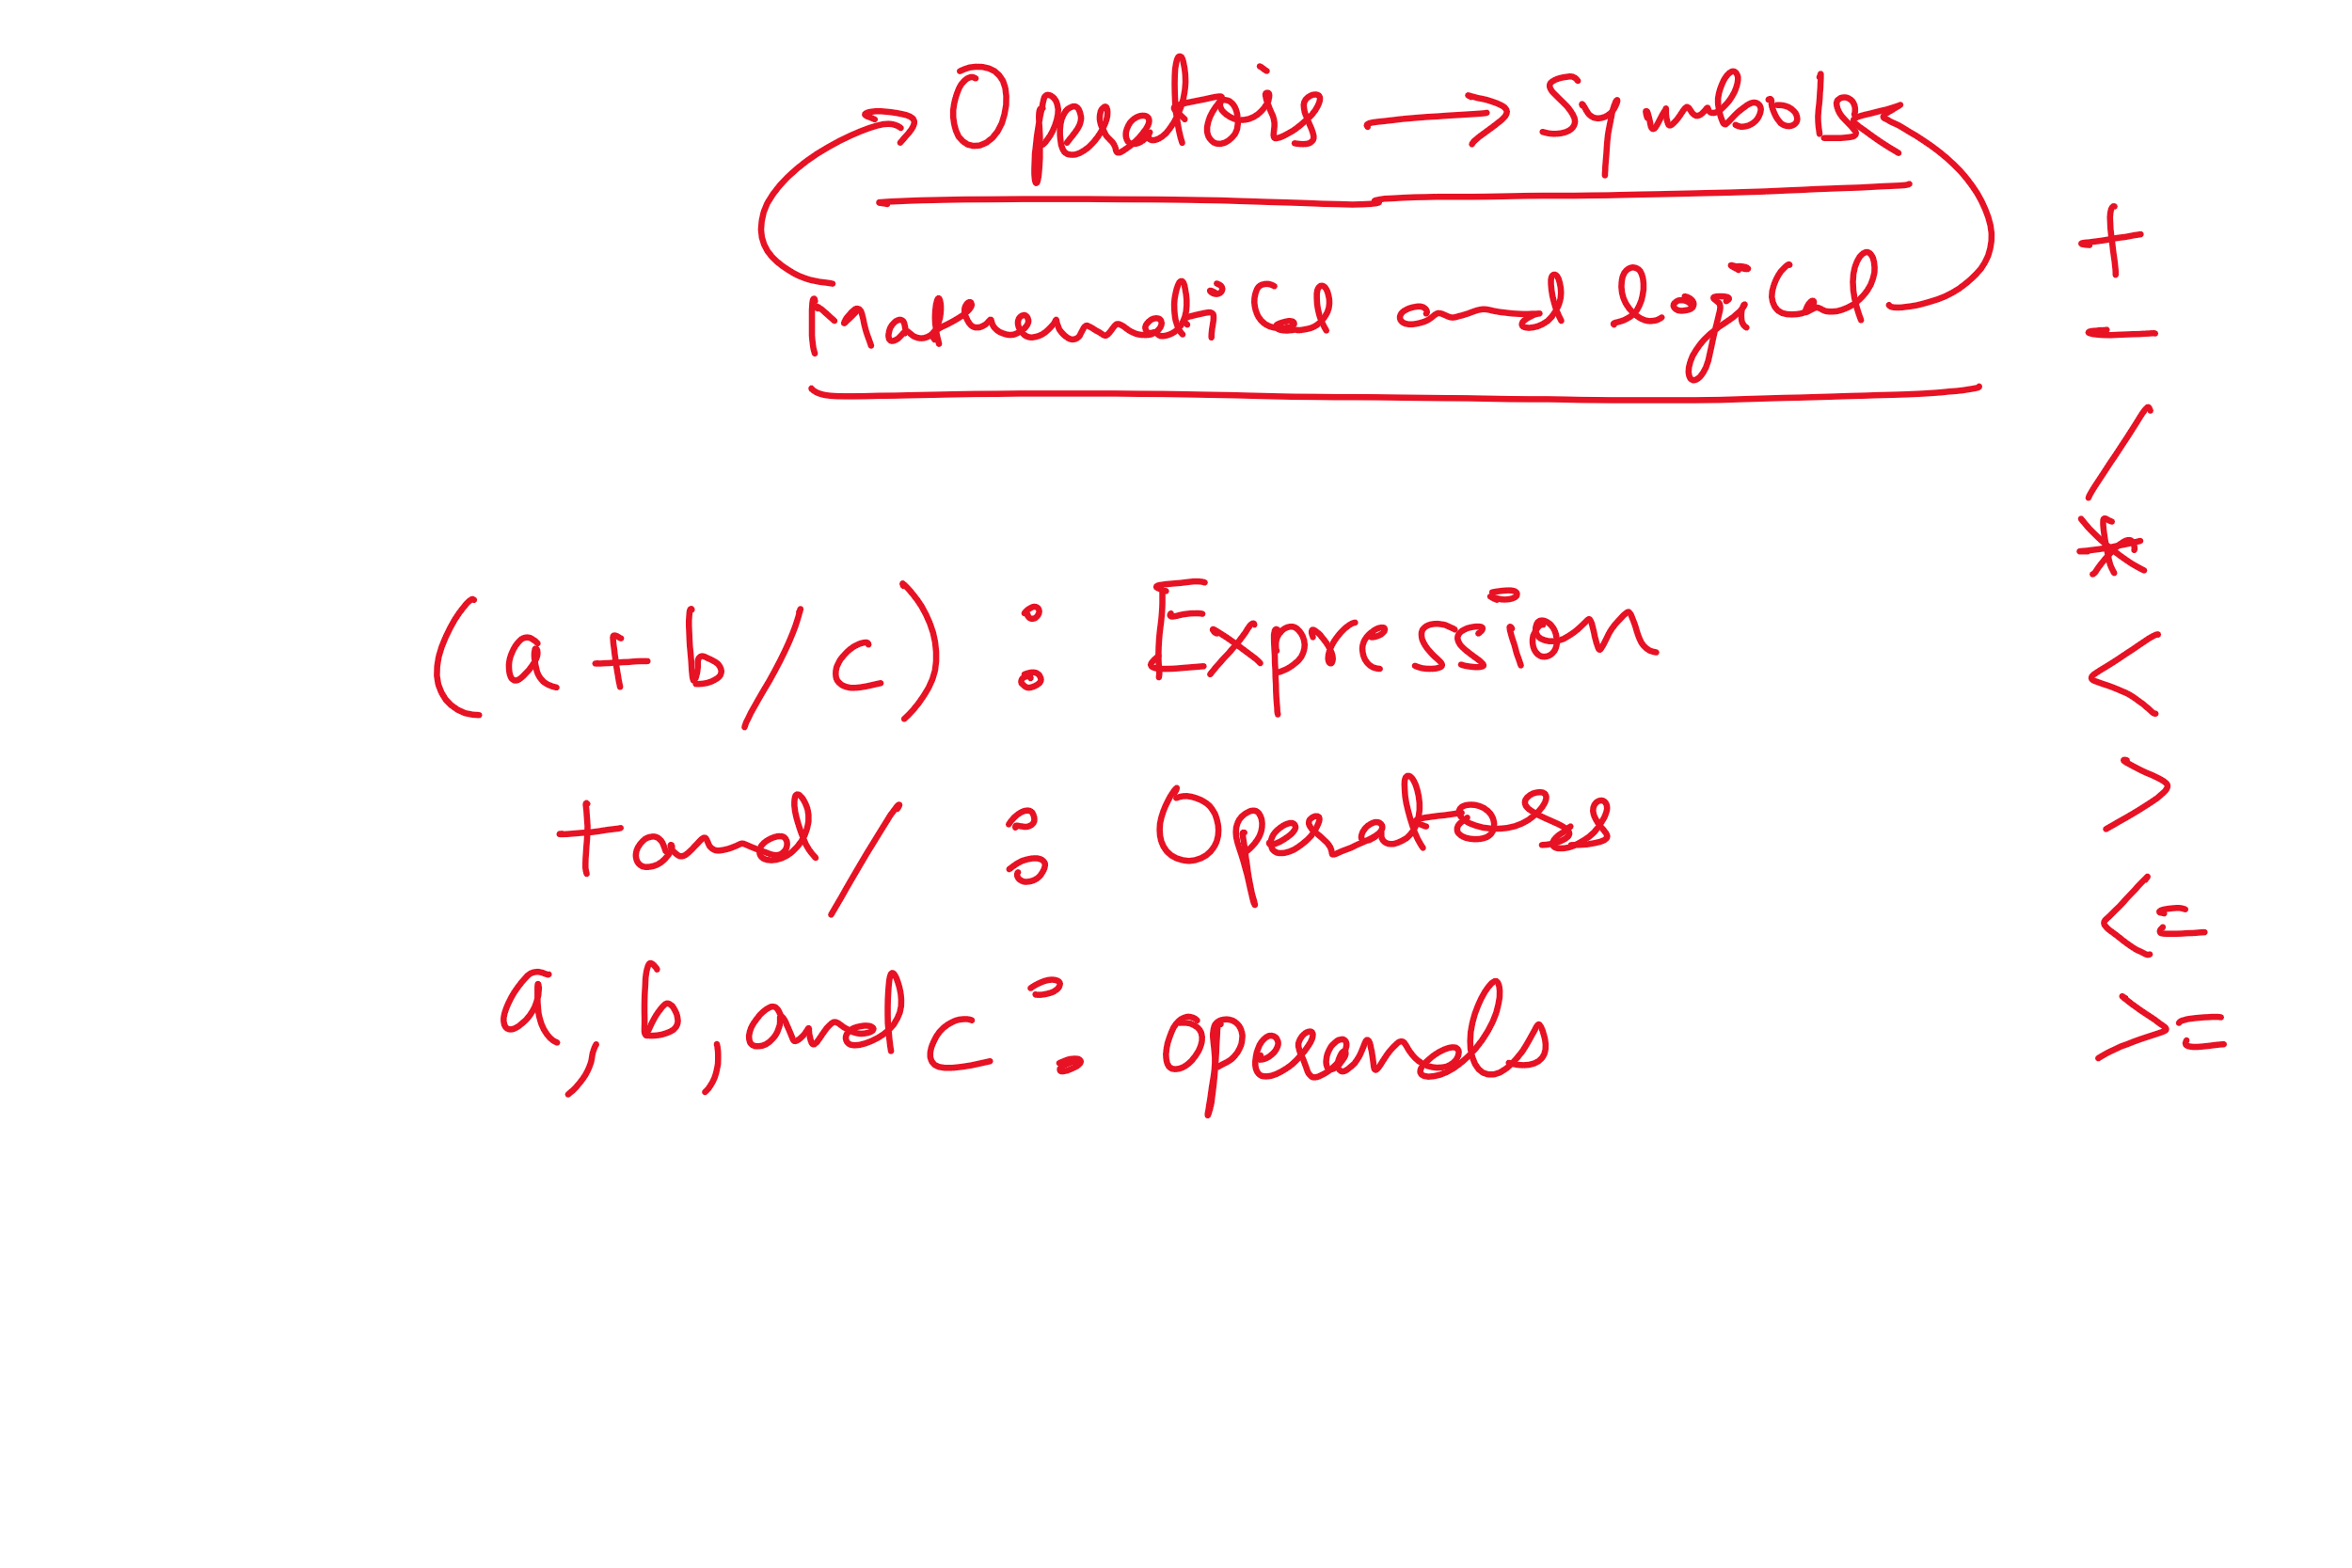 Operators → Symbols
Mathematical and logical
+
-
/
*
(a+b/c) : Expression
<
>
+ and / : Operators
<=
a, b, and c : operands
>=